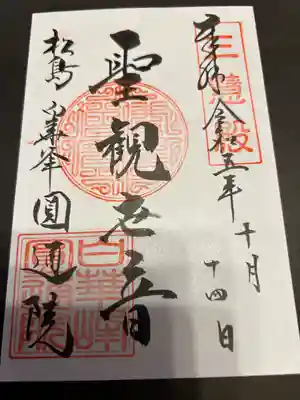 奉拝 令和五年 十月
十四日
三慧殿
聖観世音
松島 白華峰 圓通院
白華峰
圓通院